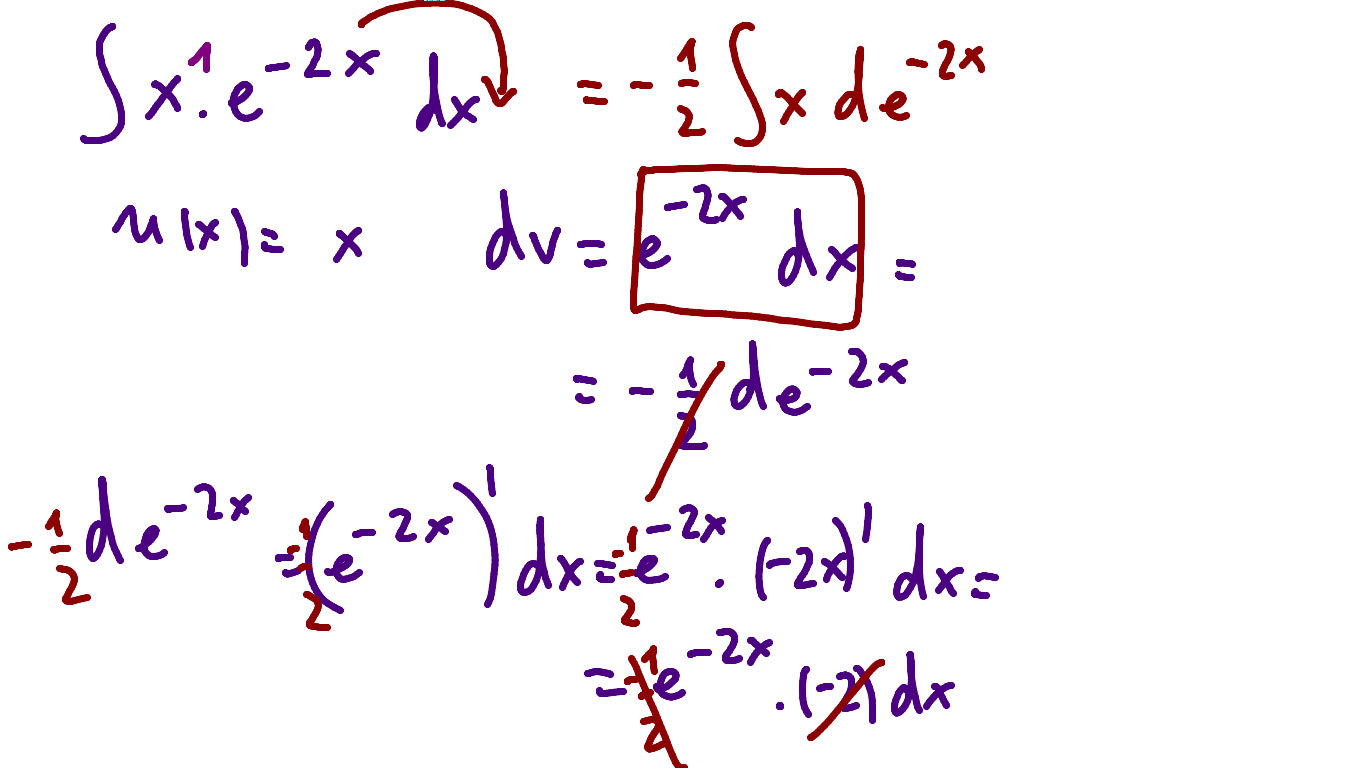 ∫ x¹ · e^{-2x} dx = - 1/2 ∫ x de^{-2x}
u(x) = x dv = e^{-2x} dx =
= - 1/2 de^{-2x}
- 1/2 de^{-2x} = - 1/2 (e^{-2x})' dx = - 1/2 e^{-2x} · (-2x)' dx =
= - 1/2 e^{-2x} · (-2) dx